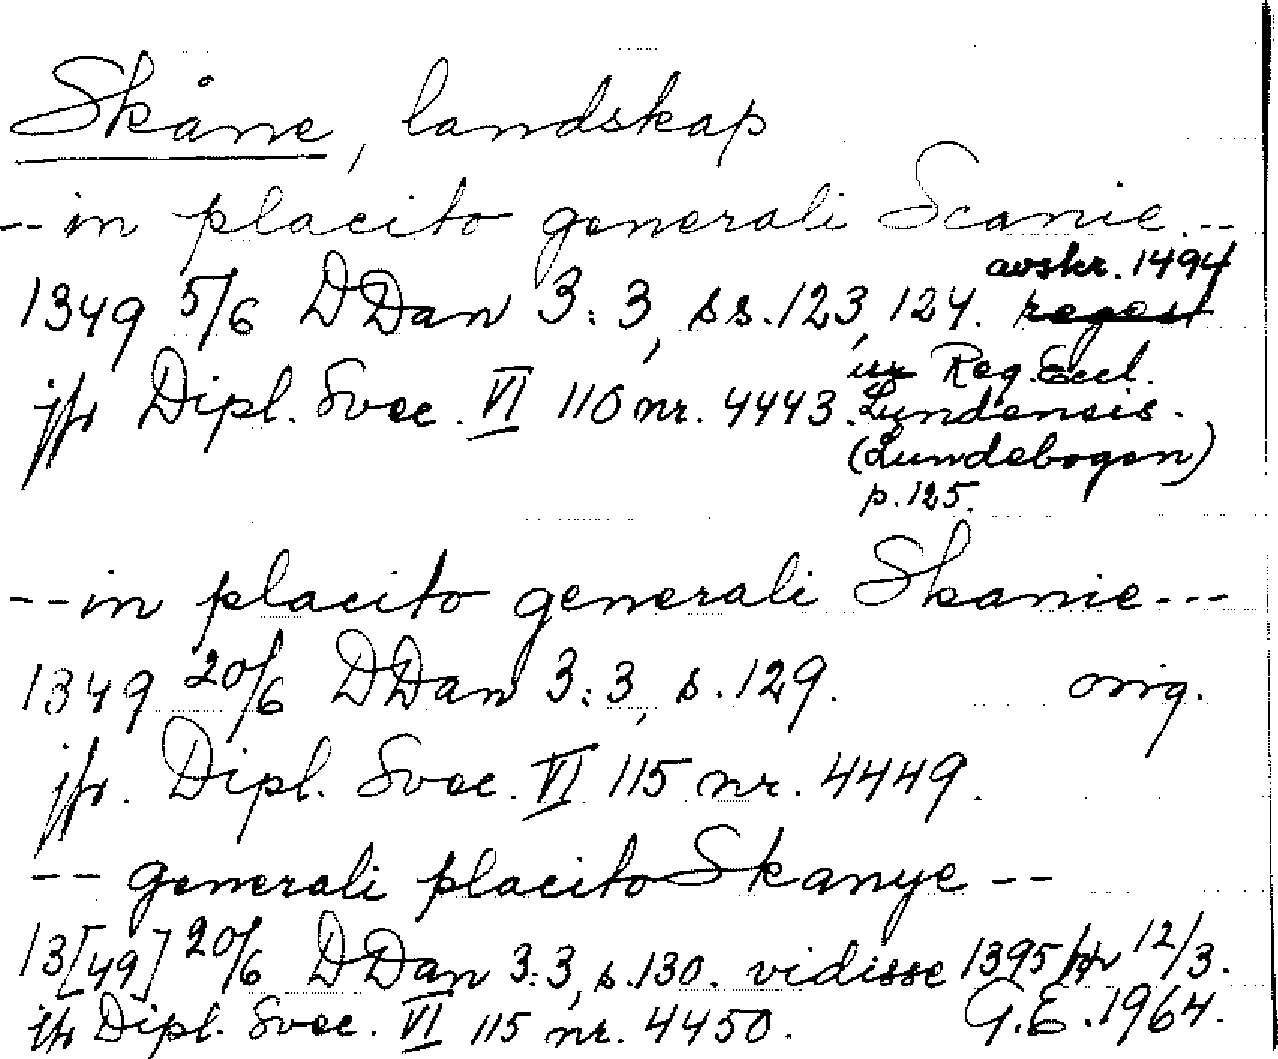 Skåne, landskap
--in placito generali Scanie.--
avskr. 1494
1349 5/6 DDan 3:3, ss.123, 124. regest
ur Reg. Eccl.
jfr Dipl. Svec. VI 110 nr. 4443. Lundensis.
(Lundebogen)
p.125.
--in placito generali Skanie---
1349 20/6 DDan 3:3, s.129. orig.
jfr. Dipl. Svec. VI 115 nr. 4449.
-- generali placito Skanye --
13[49] 20/6 DDan 3:3, s.130. vidisse 1395 12/3.
jfr Dipl. Svec. VI 115 nr. 4450. G.E. 1964.